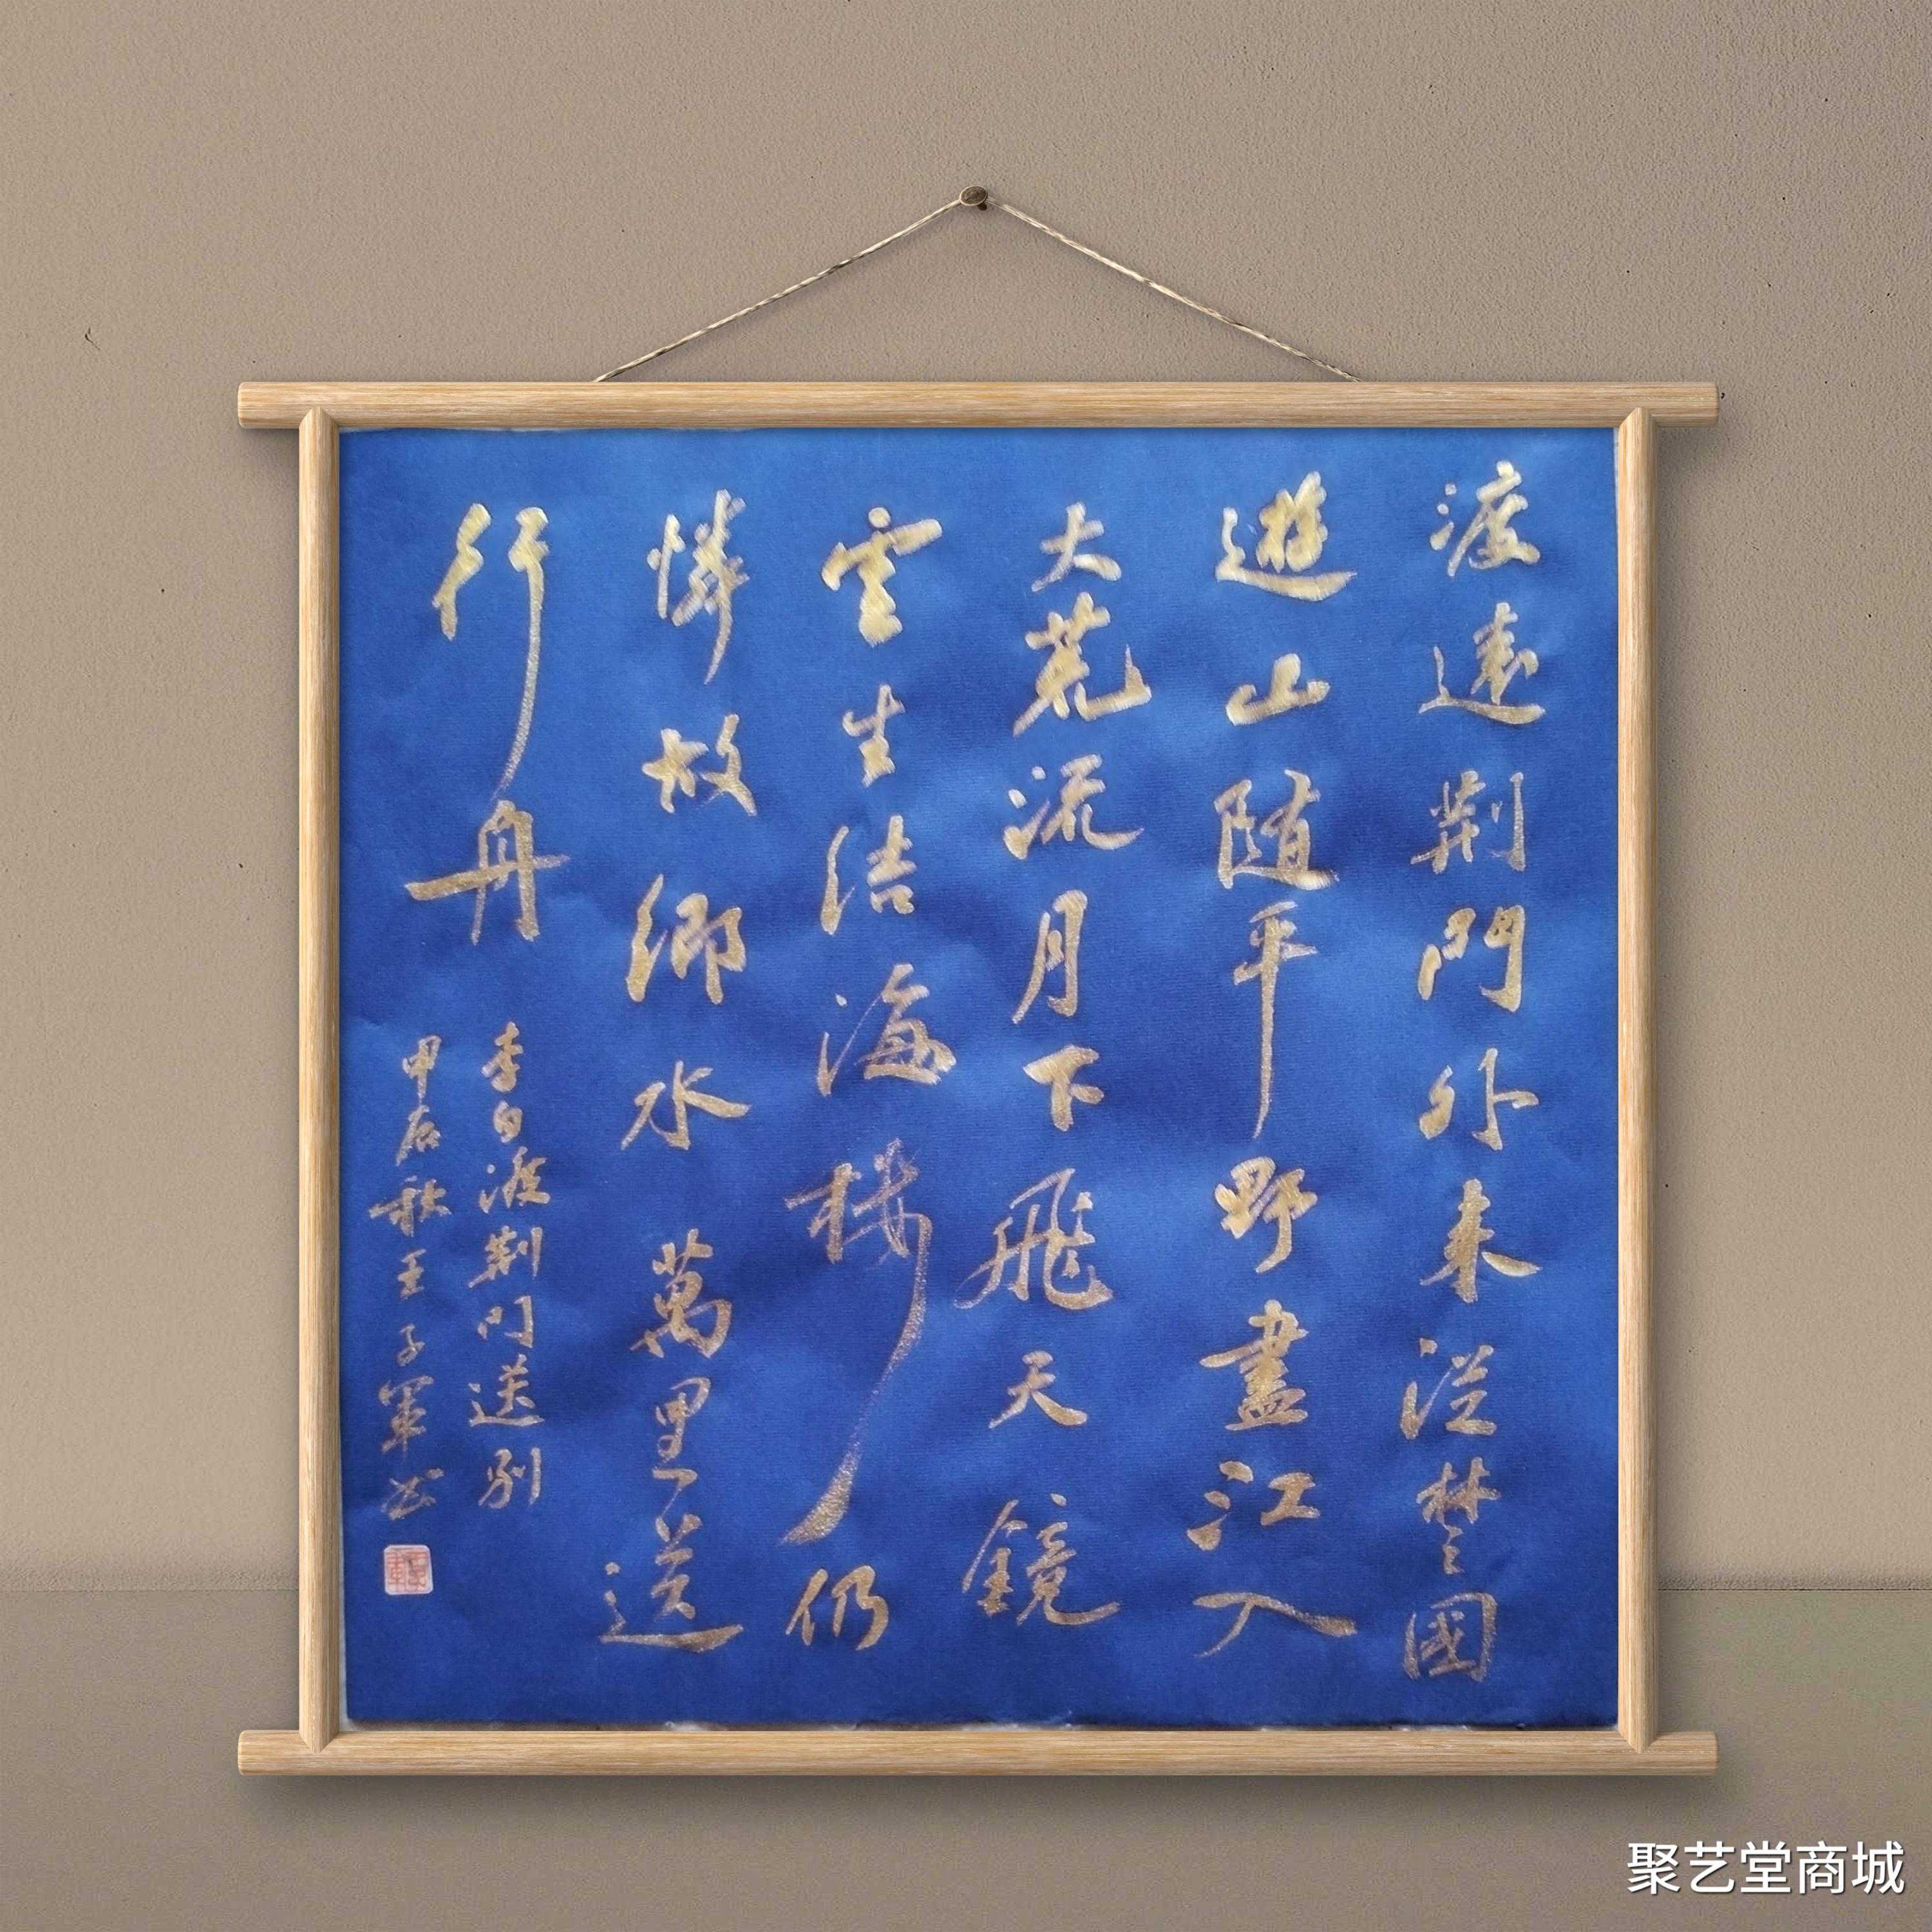 渡遠荆門外来從楚國
遊山随平野盡江入
大荒流月下飛天鏡
雲生结海楼仍
憐故鄉水萬里送
行舟
李白渡荆门送别
甲辰秋王子軍书
聚艺堂商城